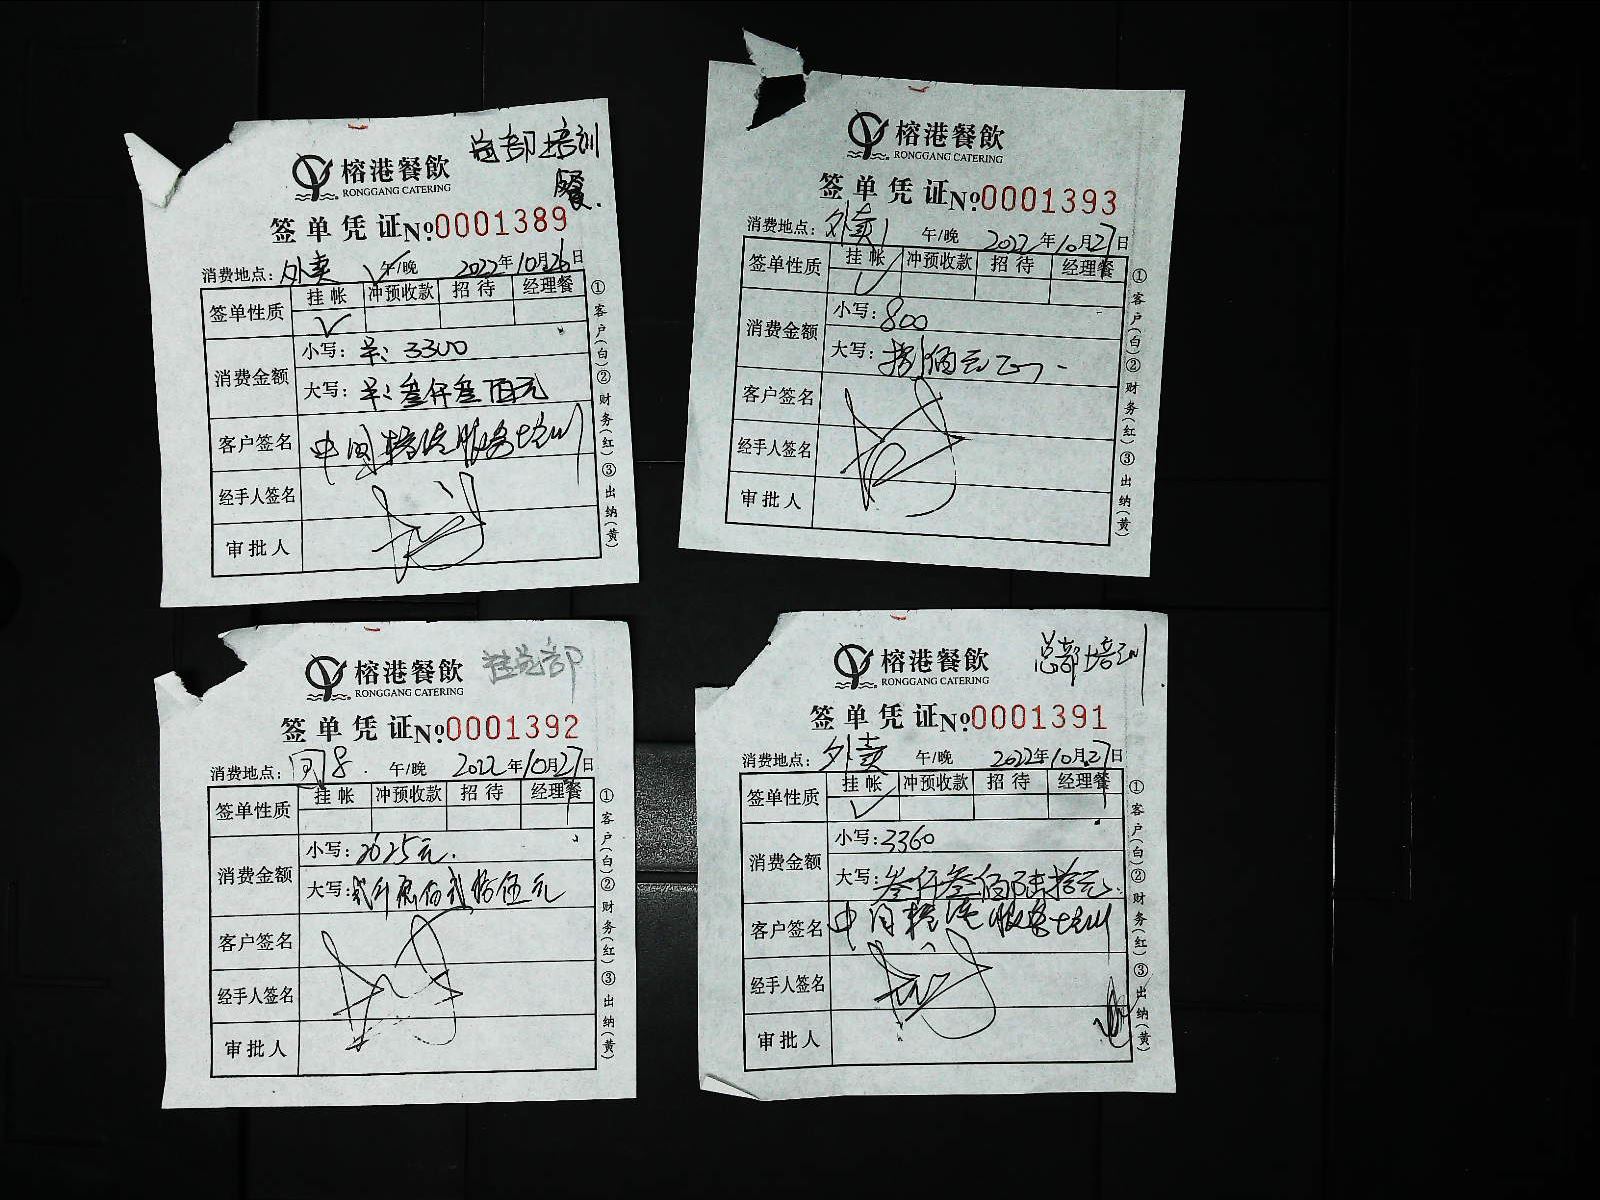 总部培训
餐.
榕港餐飲
RONGGANG CATERING
签单凭证 No 0001389
消费地点: 外卖 午/晚 2022年10月26日
签单性质 挂帐 冲预收款 招待 经理餐
消费金额
小写: 羊: 3300
大写: 羊: 叁仟叁百元
客户签名 中国 服务培训
经手人签名
审批人
①客户(白)②财务(红)③出纳(黄)
榕港餐飲
RONGGANG CATERING
签单凭证 No 0001393
消费地点: 外卖 午/晚 2022年10月27日
签单性质 挂帐 冲预收款 招待 经理餐
消费金额
小写: 800
大写: 捌佰元
客户签名
经手人签名
审批人
①客户(白)②财务(红)③出纳(黄)
部
榕港餐飲
RONGGANG CATERING
签单凭证 No 0001392
消费地点: 8. 午/晚 2022年10月27日
签单性质 挂帐 冲预收款 招待 经理餐
消费金额
小写: 元.
大写: 贰仟 佰贰拾伍元
客户签名
经手人签名
审批人
①客户(白)②财务(红)③出纳(黄)
总部培训
榕港餐飲
RONGGANG CATERING
签单凭证 No 0001391
消费地点: 外卖 午/晚 2022年10月27日
签单性质 挂帐 冲预收款 招待 经理餐
消费金额
小写: 3360
大写: 叁仟叁佰陆拾元.
客户签名 中国 服务培训
经手人签名
审批人
①客户(白)②财务(红)③出纳(黄)